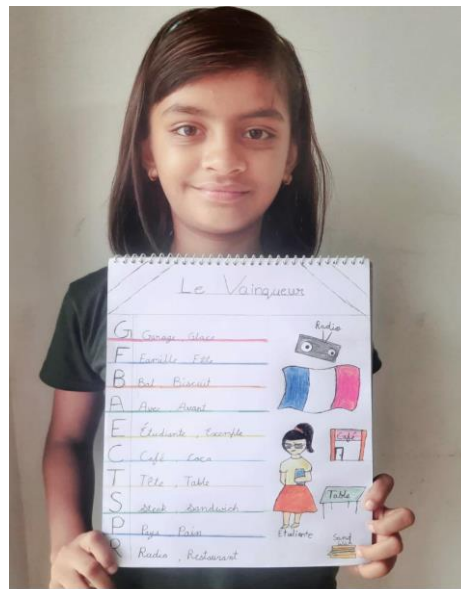 Le Vainqueur
G Garage, Glace
F Famille, Fête
B Bal, Biscuit
A Avec, Avant
E Étudiante, Exemple
C Café, Coca
T Tête, Table
S Steak, Sandwich
P Pays, Pain
R Radio, Restaurant
Radio
Café
Table
Etudiante
Sand